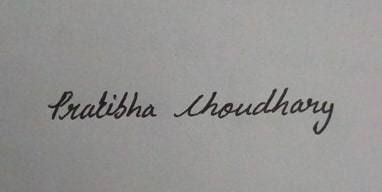 Pratibha Choudhary